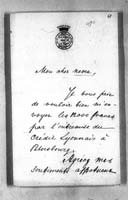 Mon cher neveu,
Je vous prie
de vouloir bien m'en-
voyer les 2000 francs
par l'entremise du
Crédit Lyonnais à
Petersbourg.
Agréez mes
sentiments affectueux